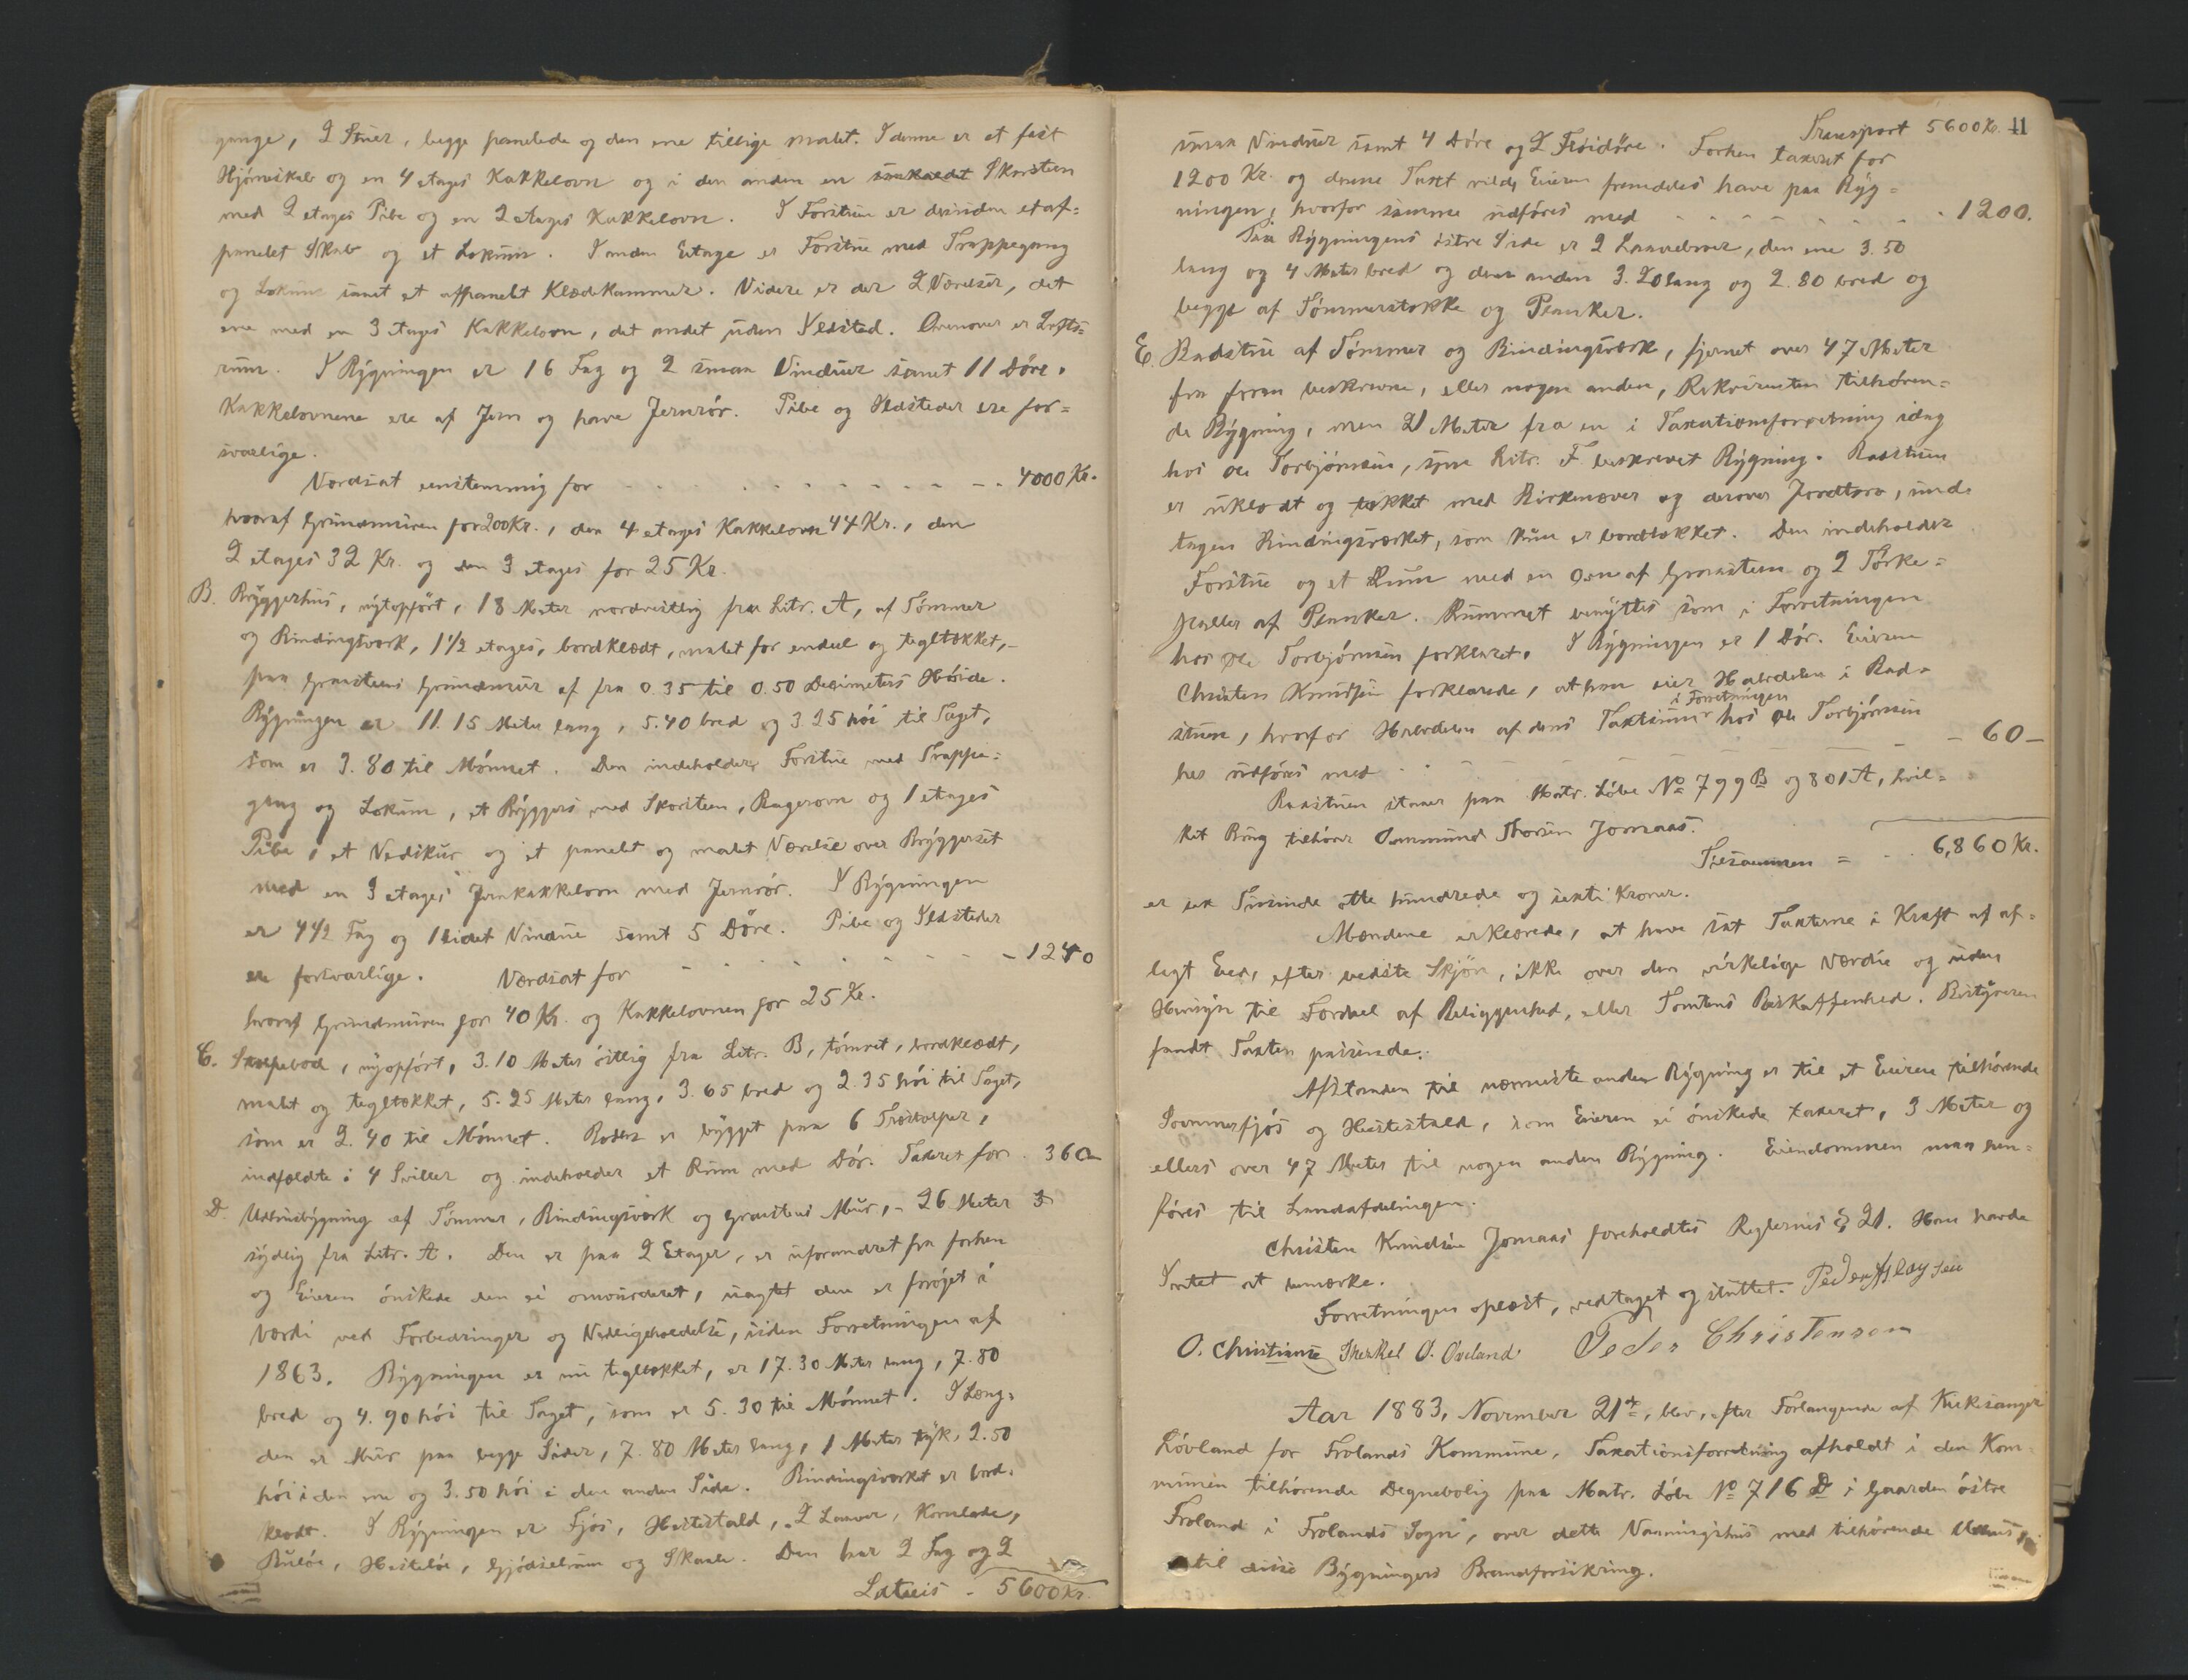 gange, 2 Stuer, begge panelede og den ene tillige malet. I denne er et fast
Hjörneskab og en 4 etages Kakkelovn og i den anden en Skorsten
med 2 etages Pibe og en 2 etages Kakkelovn. I Forstuen er desuden et af=
panelet Skab og et Lokum. I anden Etage er Forstue med Trappegang
og Lokum samt et afpanelet Klædekammer. Videre er der 2 Værelser, det
ene med en 3 etages Kakkelovn, det andet uden Ildsted. Ovenover er Lofts=
rum. I Bygningen er 16 Fag og 2 smaa Vinduer samt 11 Döre.
Kakkelovnene ere af Jern og have Jernrör. Pibe og Ildsteder ere for=
svarlige.
Værdsat eenstemmig for - - - 4000 Kr.
hvoraf Grundmuren for 200 Kr., den 4 etages Kakkelovn 44 Kr., den
2 etages 32 Kr. og den 3 etages for 25 Kr.
B. Bryggerhus, nytopfört, 18 Meter nordvestlig fra Litr. A, af Tömmer
og Bindingsværk, 1 1/2 etages, bordklædt, malet for endeel og tegltækket,
paa Graasteens Grundmur af fra 0.35 til 0.50 Decimeters Höide.
Bygningen er 11.15 Meter lang, 5.40 bred og 3.25 höi til Taget,
som er 3.80 til Mönnet. Den indeholder Forstue med Trappe=
gang og Lokum, et Bryggers med Skorsteen, Bagerovn og 1 etages
Pibe, et Vedskur og et panelet og malet Værelse over Bryggerset
med en 3 etages Jernkakkelovn med Jernrör. I Bygningen
er 4 1/2 Fag og 1 lidet Vindue samt 5 Döre. Pibe og Ildsteder
ere forsvarlige. Værdsat for - - - 1240
hvoraf Grundmuren for 40 Kr. og Kakkelovnen for 25 Kr.
C. Stolpebod, nyopfört, 3.10 Meter östlig fra Litr. B, tömret, bordklædt,
malet og tegltækket, 5.25 Meter lang, 3.65 bred og 2.35 höi til Taget,
som er 2.40 til Mönnet. Boden er bygget paa 6 Træstolper,
indfældte i 4 Sviller og indeholder et Rum med Dör. Taxeret for . 360
D. Udhusbygning af Tömmer, Bindingsværk og Graasteens Mur, - 26 Meter
sydlig fra Litr. A. Den er paa 2 Etager, er uforandret fra forhen
og Eieren önskede den ei omvurderet, uagtet den er foröget i
Værdi ved Forbedringer og Vedligeholdelse, siden Forretningen af
1863. Bygningen er nu tegltækket, er 17.30 Meter lang, 7.80
bred og 4.90 höi til Taget, som er 5.30 til Mönnet. I Læng=
den er Mur paa begge Sider, 7.80 Meter lang, 1 Meter tyk, 2.50
höi i den ene og 3.50 höi i den anden Side. Bindingsværket er bord=
klædt. I Bygningen er Fjös, Hestestald, 2 Laaver, Kornlade,
Hestelöe, Gjödselrum og Skaale. Den har 2 Fag og 2
Lateris - 5600 Kr.
Transport 5600 Kr. 41
smaa Vinduer samt 4 Döre og 2 Flöidöre. Forhen taxeret for
1200 Kr. og denne Taxt vilde Eieren fremdeles have paa Byg=
ningen, hvorfor samme udföres med - - - 1200.
Paa Bygningens östre Side er 2 Laavebroer, den ene 3.50
lang og 4 Meter bred og den anden 3.20 lang og 2.80 bred og
begge af Tömmerstokke og Planker.
E. Badstue af Tömmer og Bindingsværk, fjernet over 47 Meter
fra foran beskrevne, eller nogen anden, Rekvirenten tilhören=
de Bygning, men 21 Meter fra en i Taxationsforretning idag
hos Ole Torbjörnsen, som Litr. F beskrevet Bygning. Badstuen
er uklædt og tækket med Birkenæver og derover Jordtorv, und=
tagen Bindingsværket, som kun er bordtækket. Den indeholder
Forstue og et Rum med en Ovn af Graasteen og 2 Törke=
hjeller af Planker. Rummet benyttes som i Forretningen
hos Ole Torbjörnsen forklaret. I Bygningen er 1 Dör. Eieren
Christen Knudsen forklarede, at han eier Halvdelen i Bad=
stuen, hvorfor Halvdelen af dens Taxtsum i Forretningen hos Ole Torbjörnsen
her udföres med - - - 60 -
Badstuen staaer paa Matr. Löbe No 799B og 801A, hvil=
ket Brug tilhörer Aanund Jomaas.
Tilsammen = - . . 6,860 Kr.
er sex Tusinde otte hundrede og sexti Kroner.
Mændene erklærede, at have sat Taxterne i Kraft af af=
lagt Eed, efter bedste Skjön, ikke over den virkelige Værdie og uden
Hensyn til Fordeel af Beliggenhed, eller Tomtens Beskaffenhed. Bestyreren
fandt Taxten passende.
Afstanden til nærmeste anden Bygning er til et Eieren tilhörende
Sommerfjös og Hestestald, som Eieren ei önskede taxeret, 3 Meter og
ellers over 47 Meter til nogen anden Bygning. Eiendommen maa hen=
föres til Landafdelingen.
Christen Knudsen Jomaas foreholdtes Reglernes § 21. Han havde
Intet at bemærke.
Forretningen oplæst, vedtaget og sluttet. Peder Aslaysen
O. Christiansen Therkel O. Oveland Peder Christensen
Aar 1883, November 21de, blev, efter Forlangende af Kirkesanger
Lövland for Frolands Kommune, Taxationsforretning afholdt i den Kom=
munen tilhörende Degnebolig paa Matr. Löbe No 716 D i Gaarden östre
Froland i Frolands Sogn, over dette Vaaningshus med tilhörende Udhus
til disse Bygningers Brandforsikring.